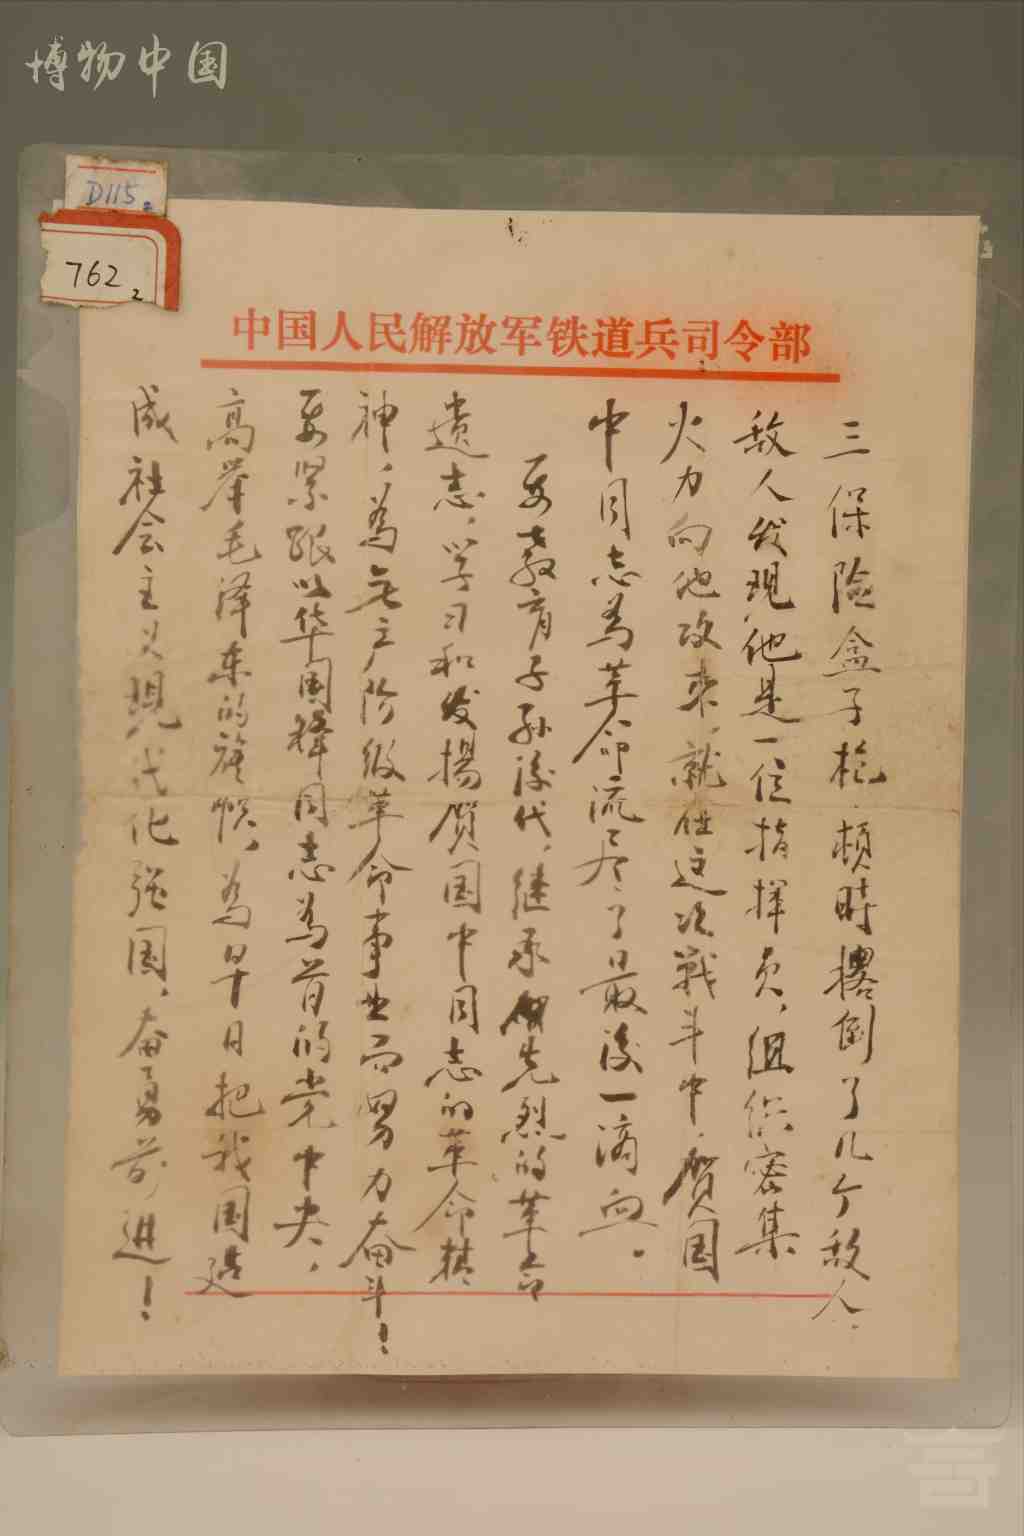 博物中国
D115₂
762₂
中国人民解放军铁道兵司令部
三保险盒子枪，頓時撂倒了几个敌人，
敌人发现他是一位指揮员，组织密集
火力向他攻来，就在这次戰斗中，贺国
中同志為革命流尽了最後一滴血。
要教育子孙後代，继承先烈的革命
遗志，学习和发揚贺国中同志的革命精
神，為无产阶级革命事业而努力奋斗！
要紧跟以华国锋同志為首的党中央，
高举毛泽东的旗帜，為早日把我国建
成社会主义現代化强国，奋勇前进！